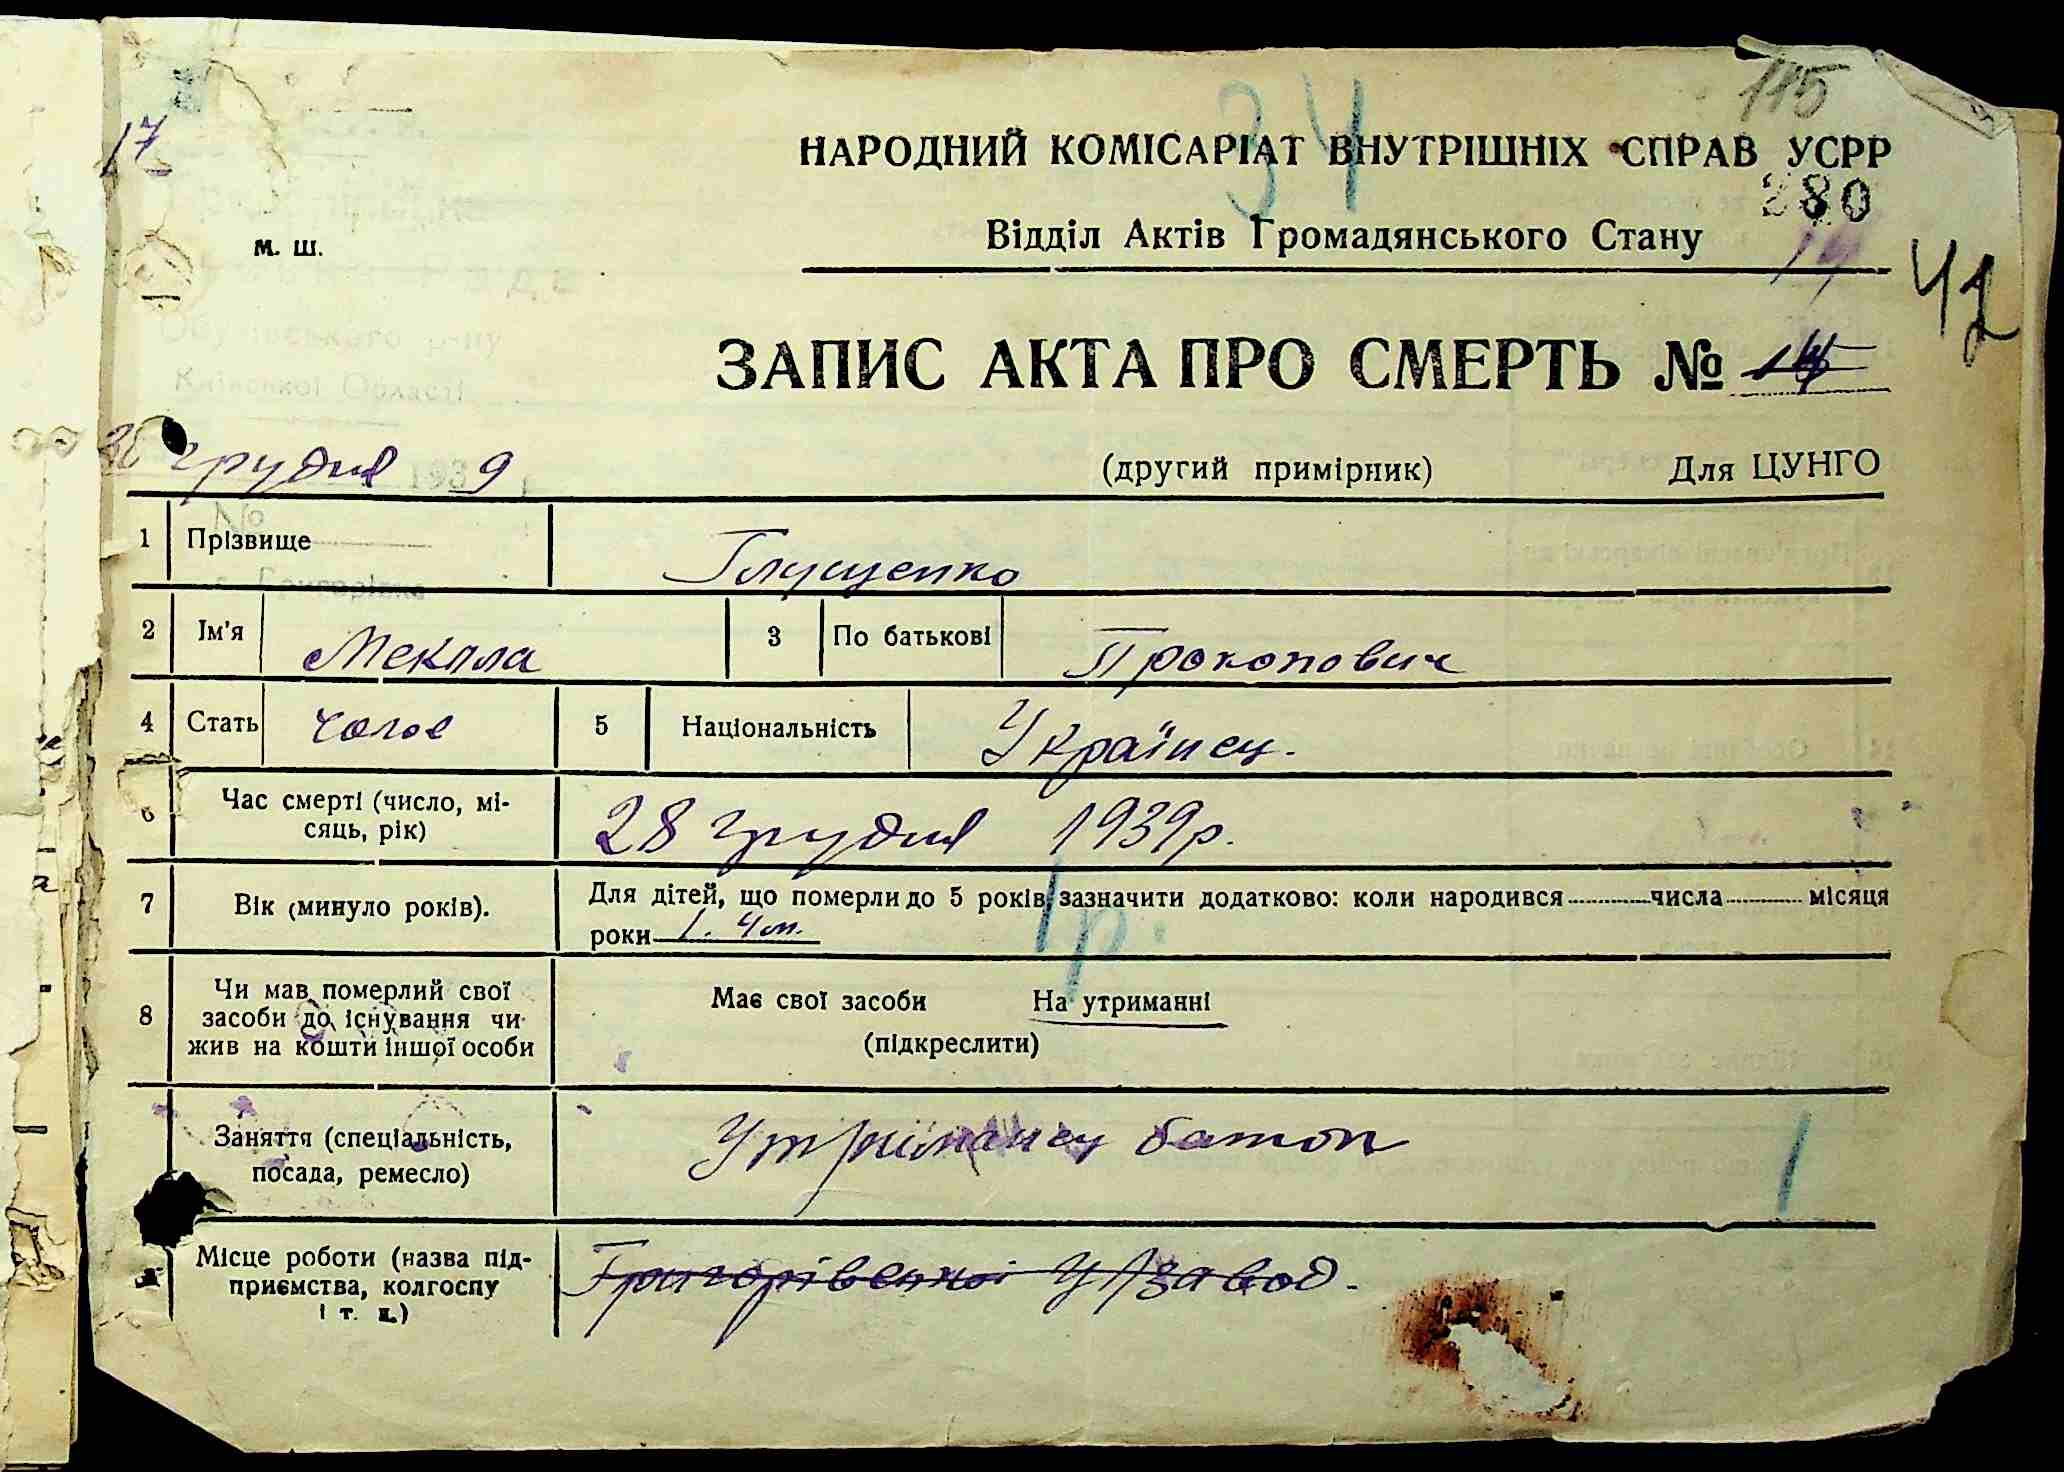 115
34
17
НАРОДНИЙ КОМІСАРІАТ ВНУТРІШНІХ СПРАВ УСРР
280
м. ш.
Відділ Актів Громадянського Стану
14
42
ЗАПИС АКТА ПРО СМЕРТЬ №
Обухівського р-ну
Київської Області
грудня 1939
(другий примірник) Для ЦУНГО
№
1 Прізвище Глущенко
с. Григорівка
2 Ім'я Микола 3 По батькові Прокопович
4 Стать чолов 5 Національність Українец.
6 Час смерті (число, мі-
сяць, рік) 28 грудня 1939р.
7 Вік (минуло років). Для дітей, що померли до 5 років, зазначити додатково: коли народився числа місяця
роки 1. 4 м.
1 р.
8 Чи мав померлий свої
засоби до існування чи
жив на кошти іншої особи
Має свої засоби На утриманні
(підкреслити)
Заняття (спеціальність,
посада, ремесло) Утриманец батьк
1
Місце роботи (назва під-
приємства, колгоспу
і т. п.)
Григорівський Ц/завод.